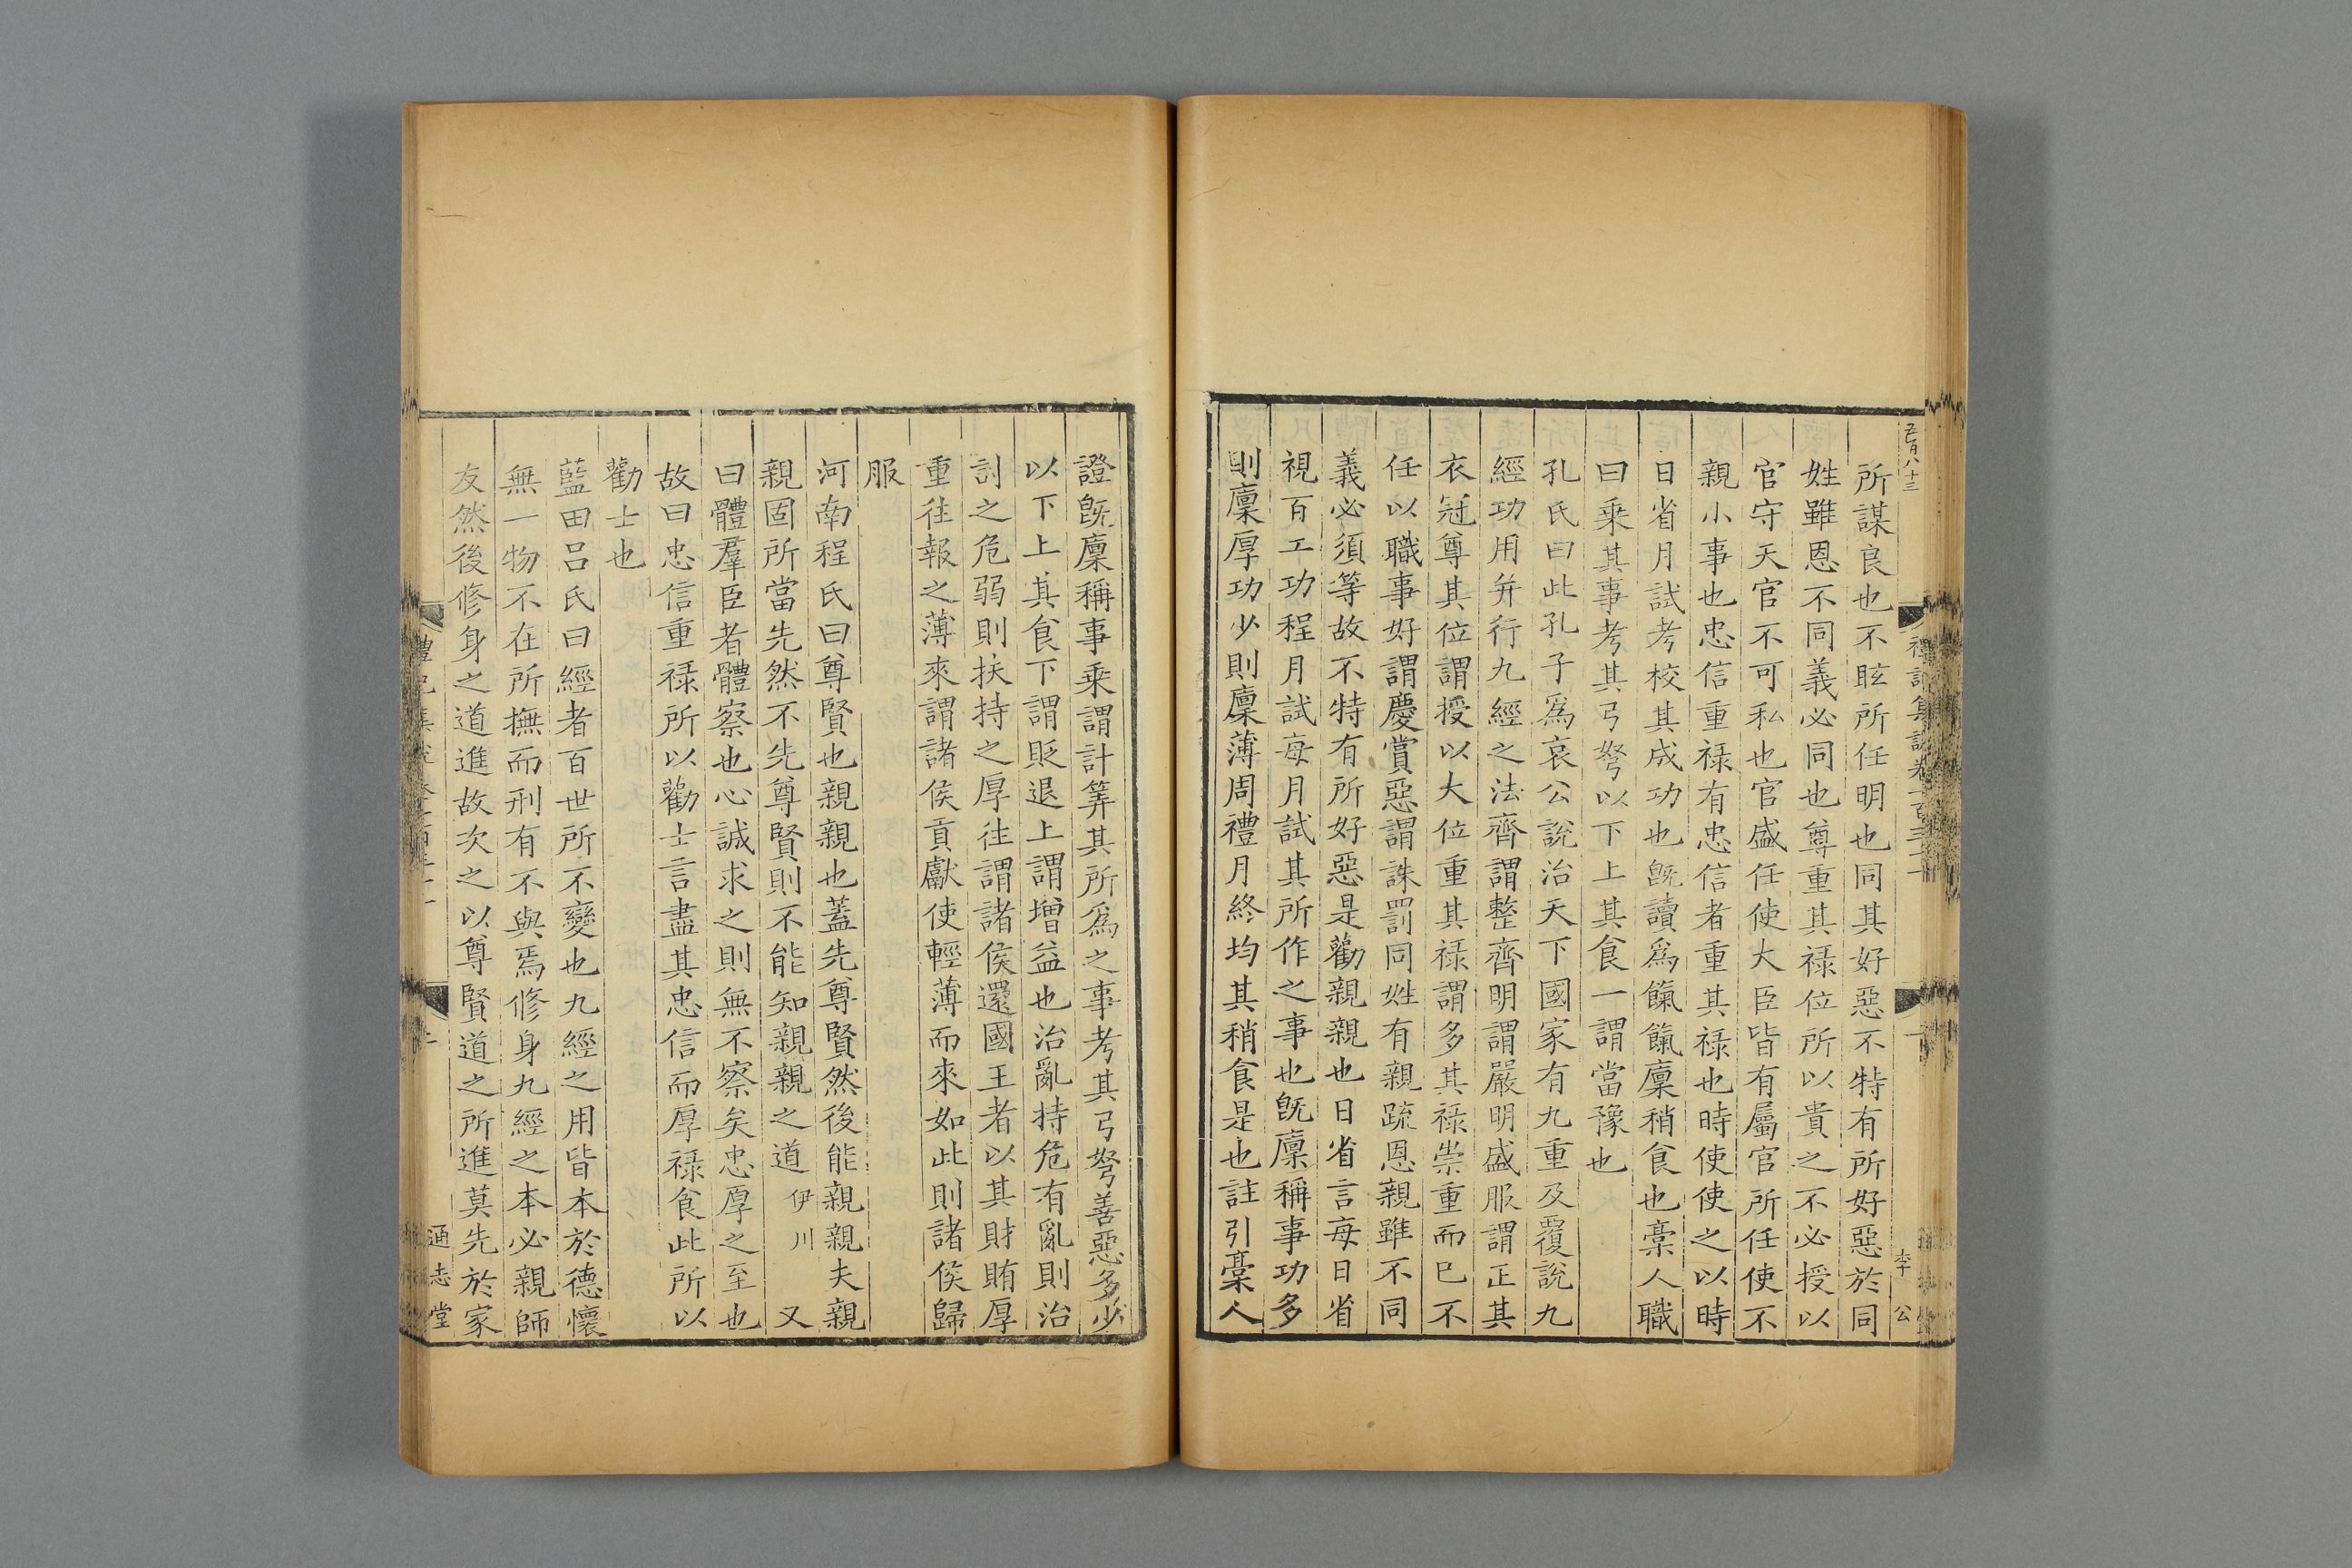 五百八十三
所謀良也不眩所任明也同其好惡不特有所好惡於同
姓雖恩不同義必同也尊重其祿位所以貴之不必授以
官守天官不可私也官盛任使大臣皆有屬官所任使不
親小事也忠信重祿有忠信者重其祿也時使使之以時
日省月試考校其成功也旣讀爲餼餼廩稍食也槀人職
曰乗其事考其弓弩以下上其食一謂當豫也
孔氏曰此孔子爲哀公說治天下國家有九重及覆說九
經功用并行九經之法齊謂整齊明謂嚴明盛服謂正其
衣冠尊其位謂授以大位重其祿謂多其祿崇重而已不
任以職事好謂慶賞惡謂誅罰同姓有親疏恩親雖不同
義必須等故不特有所好惡是勸親親也日省言每日省
視百工功程月試每月試其所作之事也旣廩稱事功多
則廩厚功少則廩薄周禮月終均其稍食是也註引槀人
李 公
證旣廩稱事乗謂計筭其所爲之事考其弓弩善惡多少
以下上其食下謂貶退上謂增益也治亂持危有亂則治
討之危弱則扶持之厚往謂諸侯還國王者以其財賄厚
重往報之薄來謂諸侯貢獻使輕薄而來如此則諸侯歸
服
河南程氏曰尊賢也親親也蓋先尊賢然後能親親夫親
親固所當先然不先尊賢則不能知親親之道伊川 又
曰體羣臣者體察也心誠求之則無不察矣忠厚之至也
故曰忠信重祿所以勸士言盡其忠信而厚祿食此所以
勸士也
藍田呂氏曰經者百世所不變也九經之用皆本於德懷
無一物不在所撫而刑有不與焉修身九經之本必親師
友然後修身之道進故次之以尊賢道之所進莫先於家
通志堂